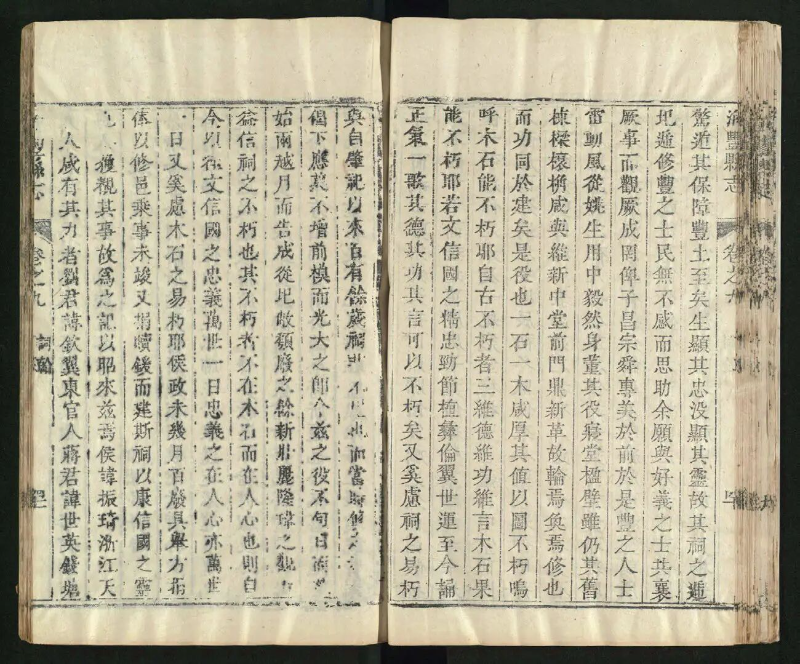 海豐縣志
卷之九
驚遁其保障豐土至矣生顯其忠没顯其靈故其祠之遁
圮遁修豐之士民無不感而思助余願與好義之士共襄
厥事而觀厥成罔俾子昌宗舜專美於前於是豐之人士
雷動風從姚生用中毅然身董其役寢堂楹壁雖仍其舊
棟樑榱桷咸與維新中堂前門鼎新革故輪焉奐焉修也
而功同於建矣是役也一石一木咸厚其值以圖不朽嗚
呼木石能不朽耶自古不朽者三維德維功維言木石果
能不朽耶若文信國之精忠勁節植彝倫翼世運至今誦
正氣一歌其德其功其言可以不朽矣又奚慮祠之易朽
與自肇記以來百有餘歲祠
而當時
下應募不增前模而光大之
茲之役不句日
始兩越月而告成從圮敗頹廢之餘新壯麗隆瑋之觀
信祠之不朽也其不朽者不在木石而在人心也則自
今以往文信國之忠義萬世一日忠義之在人心亦萬世
一日又奚慮木石之易朽耶侯政未幾月百廢具舉方
俸以修邑乘事未竣又捐贖鍰而建斯祠以康信國之靈
獲觀其事故為之記以昭來茲焉侯諱振琦浙江天
人咸有其力者劉君諱欽翼東官人蔣君諱世英錢塘
縣志
卷之九